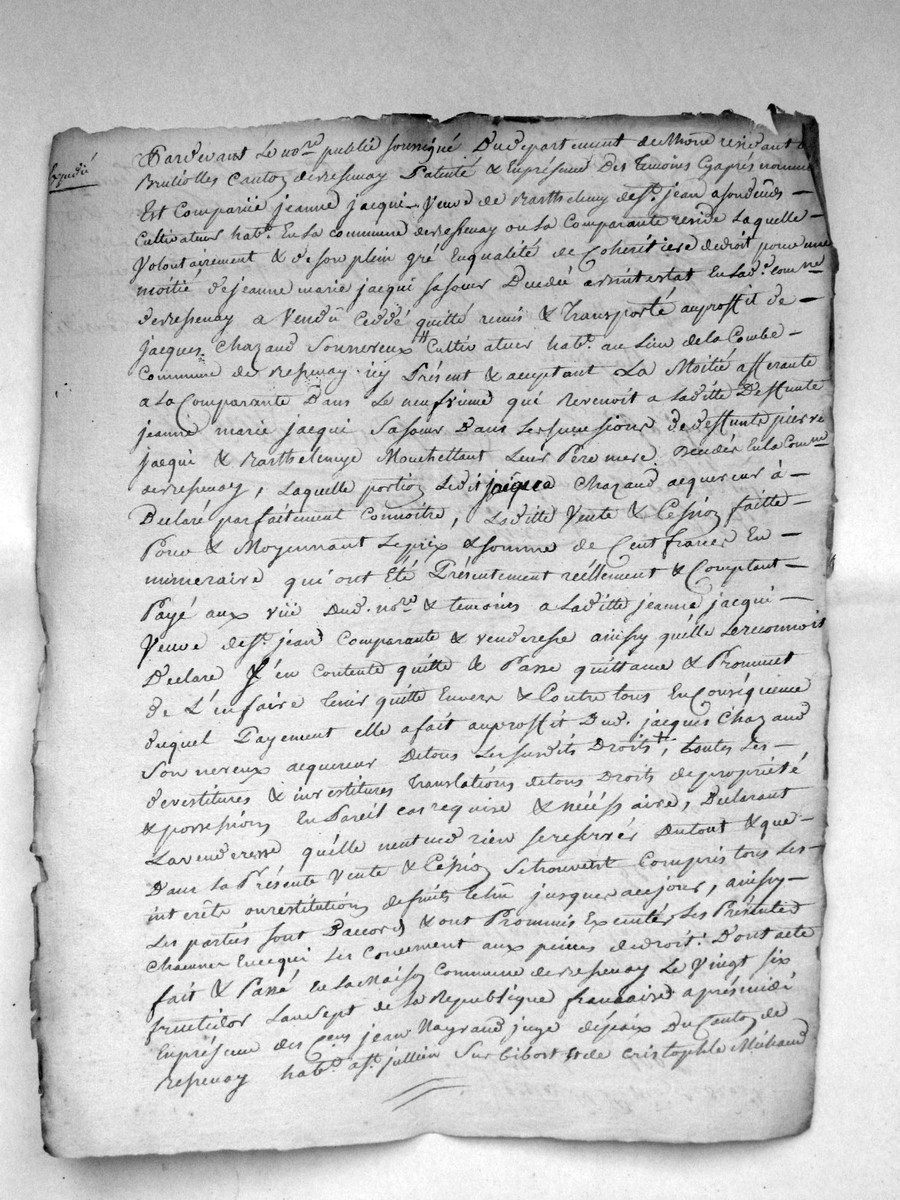 Expedié
Pardevant Le no.re public soussigné Du departement du Rhône residant a
Brulliolles Canton de Bessenay Patenté & En présence Des Temoins Cy après nommés
Est Comparüe jeanne jacqui Veuve de Barthelemy de St. jean a son decds
Cultivateur hab.t En la commune de Bessenay ou la Comparante reside Laquelle
Volontairement & de son plein gré En qualité de Coheritiere de droit pour une
moitié de jeanne marie jacqui sa sœur Decedée abintestat En lad.e com.ne
de Bessenay a Vendû Ceddé quitté remis & Transporté au proffit de
jacques Chazaud Son nereux Cultivateur hab.t au Lieu de la Combe
Commune de Bessenay icy Présent & acceptant La Moitié afferante
a La Comparante Dans Le neufvieme qui Revenoit a Laditte Deffunte
jeanne marie jacqui Sa sœur Dans Les successions de deffunts pierre
jacqui & Barthelemye Mouchettant Leur Pere mere Decedés En la Com.ne
de Bessenay, Laquelle portion Ledit jacques Chazaud acquereur à
Declaré parfaitement Connoitre, Laditte Vente & Cession faitte
Pour & Moyennant Le prix & somme de Cent francs En
numeraire qui ont Eté Présentement réellement & Comptant
Payé aux vûë Dud. no.re & temoins a Laditte jeanne jacqui
Veuve de St. jean Comparante & venderesse ainsy quelle Le reconnois
Declare S'en contente quitte & Passe quittance & Prommet
de L'en faire tenir quitte Envers & Contre tous En Conséquence
duquel Payement elle a fait au proffit Dud. jacques Chazaud
Son nereux acquereur de tous Les susdits Droits, toutes Les
devestitures & investitures Translations de tous Droits de propriété
& possessions En Pareil cas requise & nécéssaire, Declarant
La venderesse quelle n'entend rien se reserver Du tout & que
Dans La Présente Vente & Cession Se trouvent Compris tous Les
interêts ou restitutions de fruits Echû jusque a ce jour, ainsy
Les parties sont D'accord & ont Prommis Executés Les Présentes
Chacunes En ce qui Les Concernent aux peines de droit: Dont acte
fait & Passé En La Maison Commune de Bessenay Le Vingt six
fructidor L'an Sept de La Republique francaise après midi
En présence des C.ens jean Nagrand juge de paix Du Canton de
Bessenay hab.t a St. jullien Sur bibost & de Cristophle Michaud